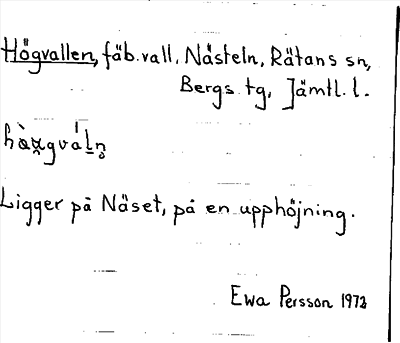 Högvallen, fäb.vall, Nästeln, Rätans sn,
Bergs tg, Jämtl. l.
Ligger på Näset, på en upphöjning.
Ewa Persson 1973